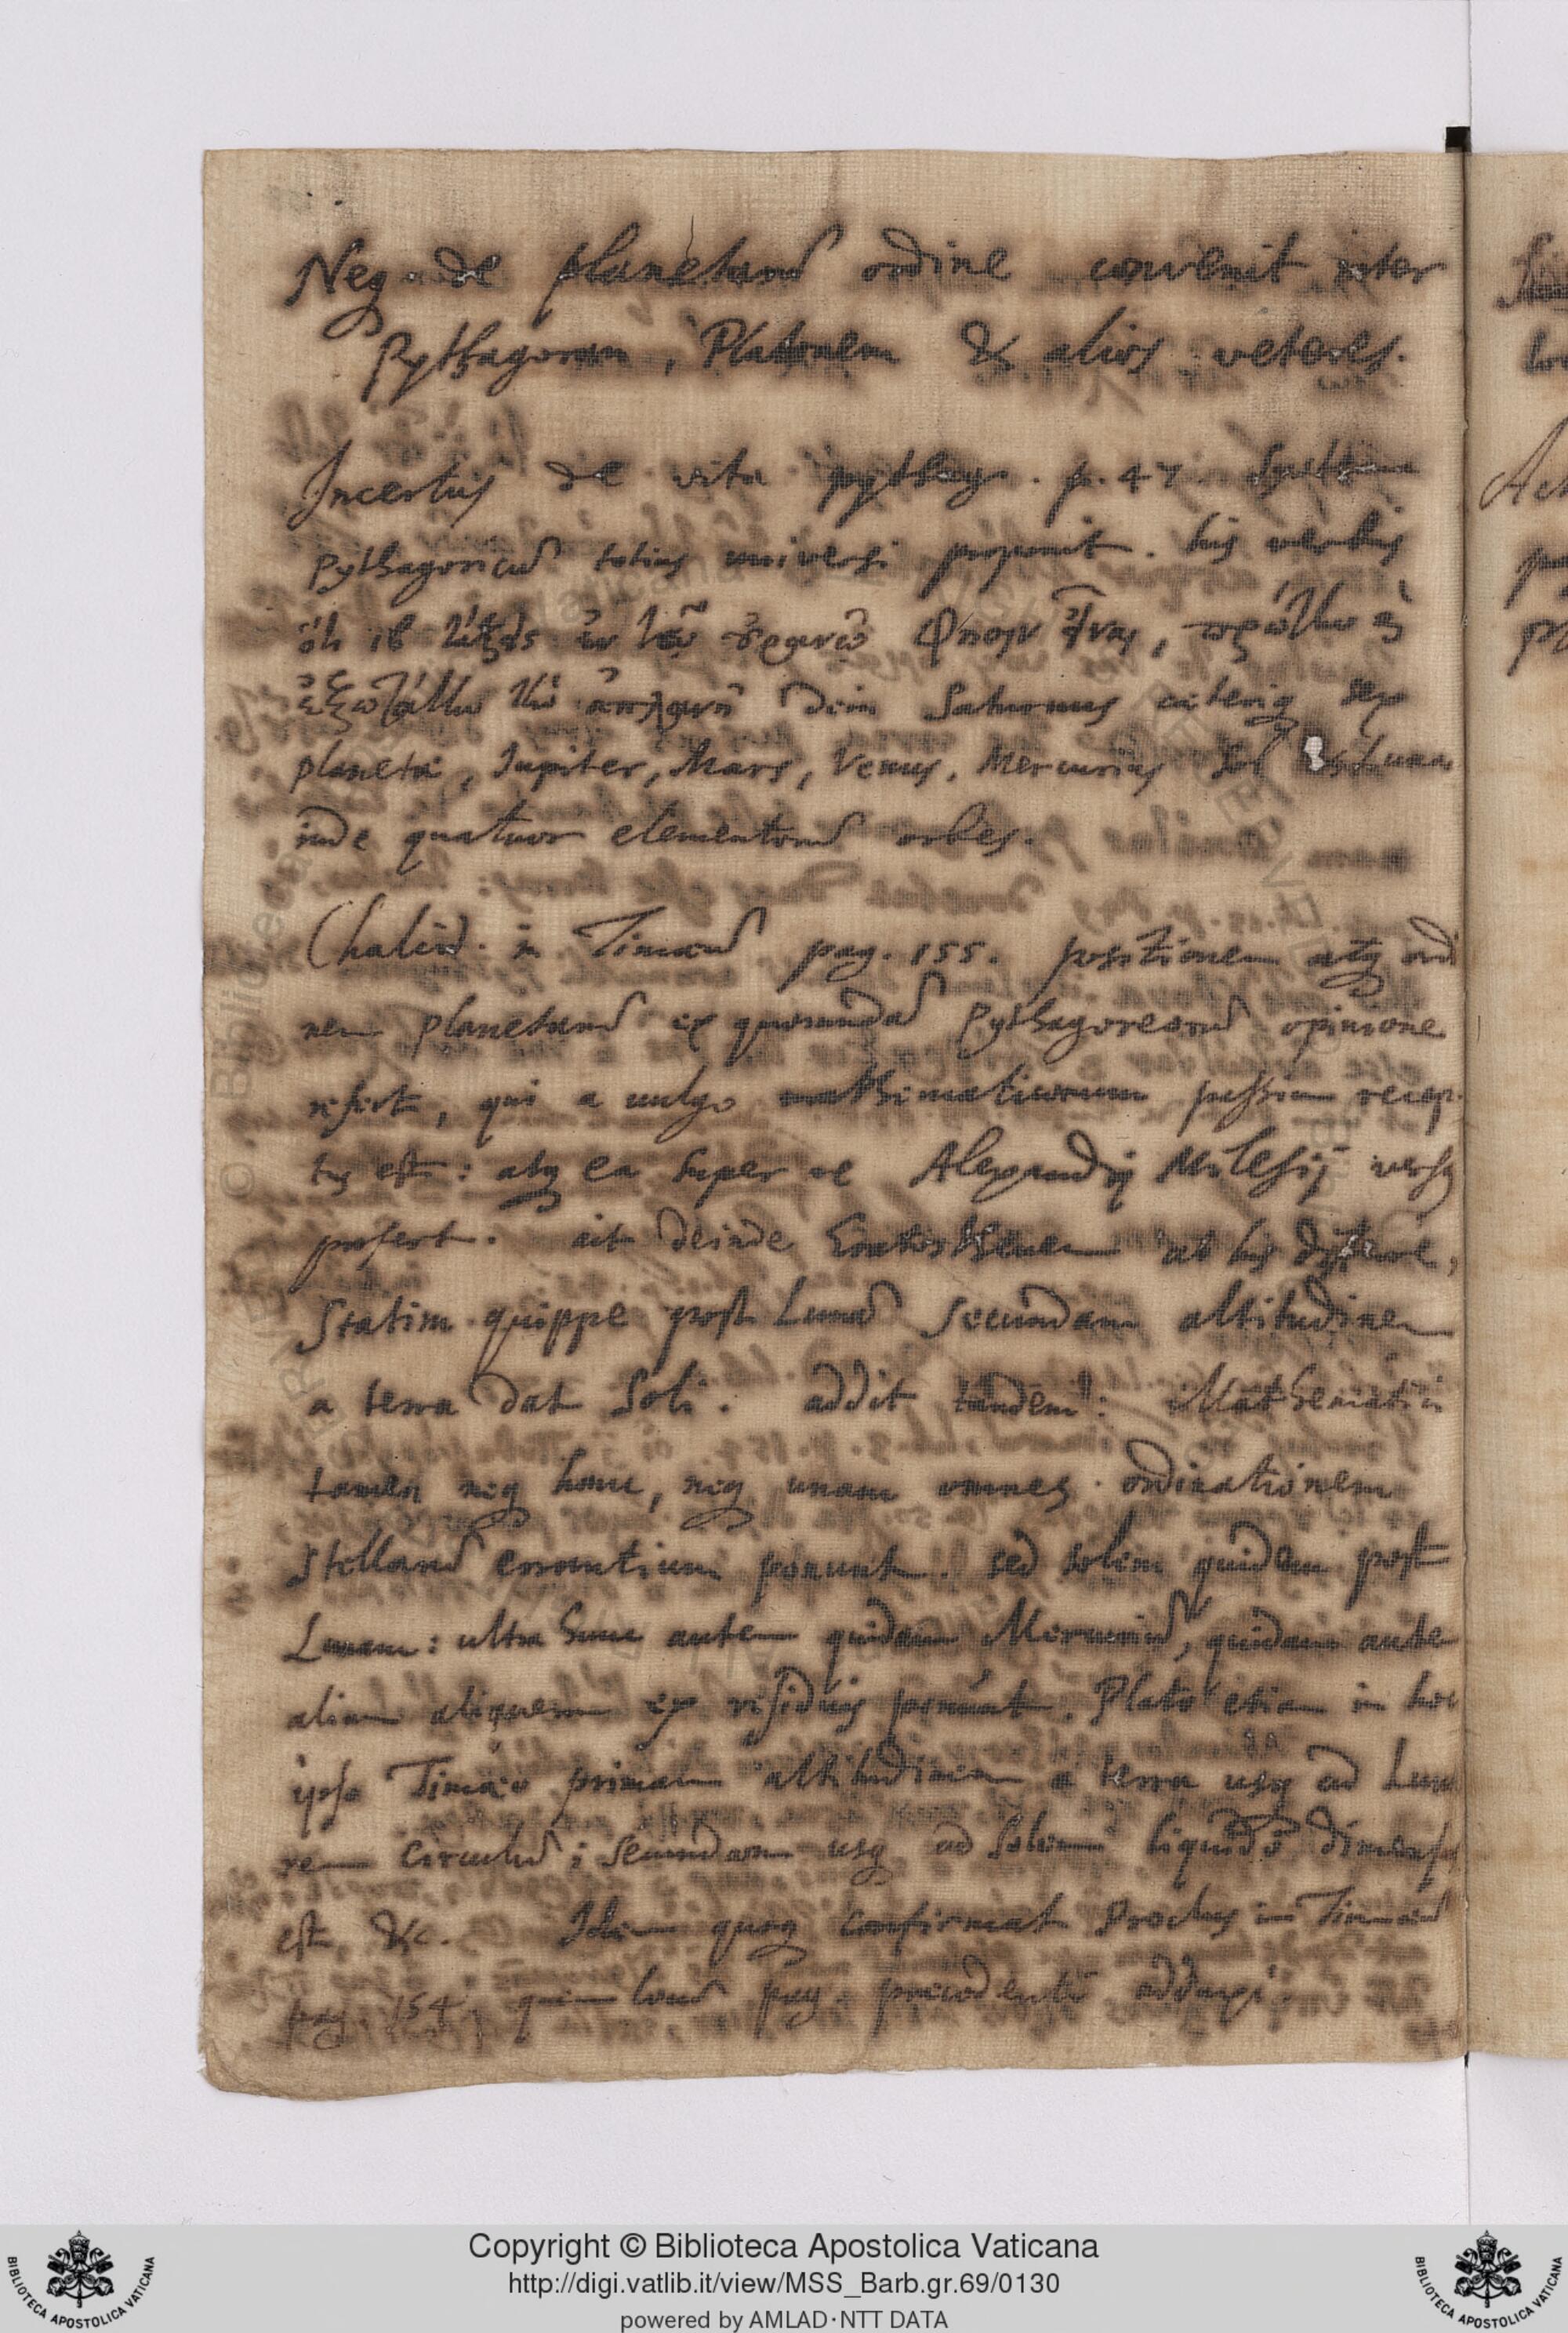 Neq de planetarũ ordine convenit inter
Pythagoram, Platonem & alios veteres.
Incertus de vita pythag. p. 47.
Pythagoricũ totius universi proponit. his verbis
ὅτι ιβ τάξεις ἐν τῷ οὐρανῷ φησιν εἶναι, πρώτην ϗ
ἐξωτάτω τὴν ἀπλανῆ dein Saturnus ceteriq sex
planetæ, Jupiter, Mars, Venus, Mercurius Sol & Luna
inde quatuor elementorũ orbes.
Chalcid. in Timæũ pag. 155. positionem atq ordi
nem planetarũ ex quorundã Pythagoreorũ opinione
refert, qui a vulgo mathematicorum passim recep-
tus est: atq ea super re Alexandrj Milesij versus
profert. ait deinde Eratosthenem ab his differre,
Statim quippe post Lunã secundam altitudinem
a terra dat Soli. addit tandem: Mathematici
tamen neq hanc, neq unam omnes ordinationem
Stellarũ errantium ponunt. sed solem quidem post
Lunam: ultra hunc autem quidam Mercuriũ, quidam autem
alium aliquem ex residuis ponunt. Plato etiam in hoc
ipso Timæo primam altitudinem a terra usq ad Luna
rem circulũ; secundam usq ad Solem liquidò dimensus
est, &c. Idem quoq confirmat Proclus in Timæũ
pag. 154, quem locũ pag. præcedenti adduxi.
Copyright © Biblioteca Apostolica Vaticana
http://digi.vatlib.it/view/MSS_Barb.gr.69/0130
powered by AMLAD·NTT DATA
BIBLIOTECA APOSTOLICA VATICANA
BIBLIOTECA APOSTOLICA VATICANA